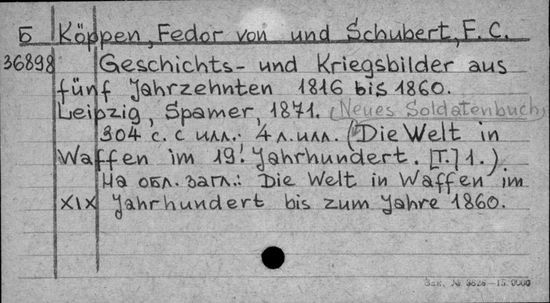 Б Köppen, Fedor von und Schubert, F. C.
36898 Geschichts- und Kriegsbilder aus
fünf Jahrzehnten 1816 bis 1860.
Leipzig, Spamer, 1871. (Neues Soldatenbuch)
304 с. с илл.; 4 л. илл. (Die Welt in
Waffen im 19. Jahrhundert. [T.] 1.)
На обл. загл.: Die Welt in Waffen im
XIX Jahrhundert bis zum Jahre 1860.
Зак. № 3826—15.0000